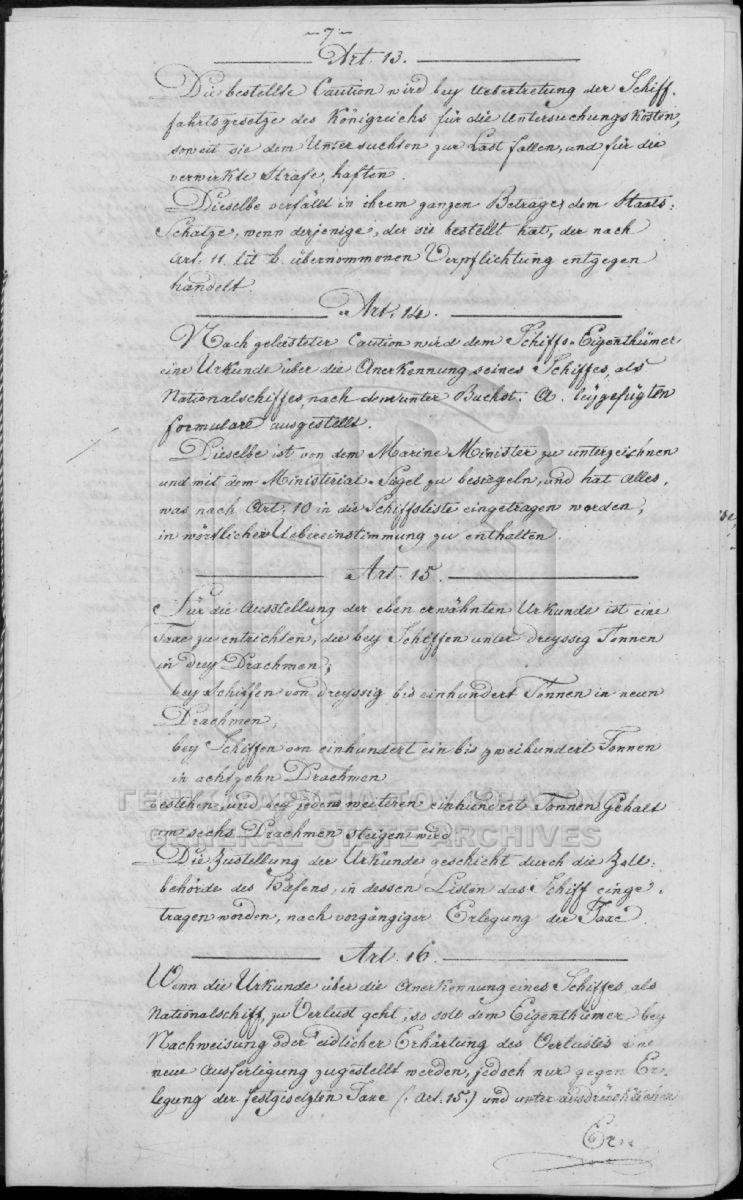 -7-
Art. 13.
Die bestellte Caution wird bey Uebertretung der Schiff-
fahrtsgesetze des Königreichs für die Untersuchungskosten,
soweit sie dem Untersuchten zur Last fallen, und für die
verwirkte Strafe, haften.
Dieselbe verfällt in ihrem ganzen Betrage, dem Staats-
Schatze, wenn derjenige, der sie bestellt hat, der nach
Art. 11. lit b. übernommenen Verpflichtung entgegen
handelt.
Art. 14.
Nach geleisteter Caution wird dem Schiffs-Eigenthümer
eine Urkunde über die Anerkennung seines Schiffes, als
Nationalschiffes, nach dem unter Buchst. A. beygefügten
Formulare ausgestellt.
Dieselbe ist von dem Marine Minister zu unterzeichnen
und mit dem Ministerial-Sigel zu besiegeln, und hat alles,
was nach Art. 10 in die Schiffsliste eingetragen worden,
in wörtlicher Uebereinstimmung zu enthalten.
Art. 15.
Für die Ausstellung der eben erwähnten Urkunde ist eine
Taxe zu entrichten, die bey Schiffen unter dreyssig Tonnen
in drey Drachmen;
bey Schiffen von dreyssig bis einhundert Tonnen in neun
Drachmen,
bey Schiffen von einhundert ein bis zweihundert Tonnen
in achtzehn Drachmen
bestehen, und bey jedem weiteren einhundert Tonnen Gehalt
um sechs Drachmen steigen wird.
Die Zustellung der Urkunde, geschieht durch die Zoll-
behörde des Hafens, in dessen Listen das Schiff einge-
tragen worden, nach vorgängiger Erlegung der Taxe.
Art. 16.
Wenn die Urkunde über die Anerkennung eines Schiffes, als
Nationalschiff, zu Verlust geht, so solle dem Eigenthümer bey
Nachweisung oder eidlicher Erhärtung des Verlustes eine
neue Ausfertigung zugestellt werden, jedoch nur gegen Er-
legung der festgesetzten Taxe (: Art. 15.) und unter ausdrücklichen
Er-
ΓΕΝΙΚΑ ΑΡΧΕΙΑ ΤΟΥ ΚΡΑΤΟΥΣ
GENERAL STATE ARCHIVES